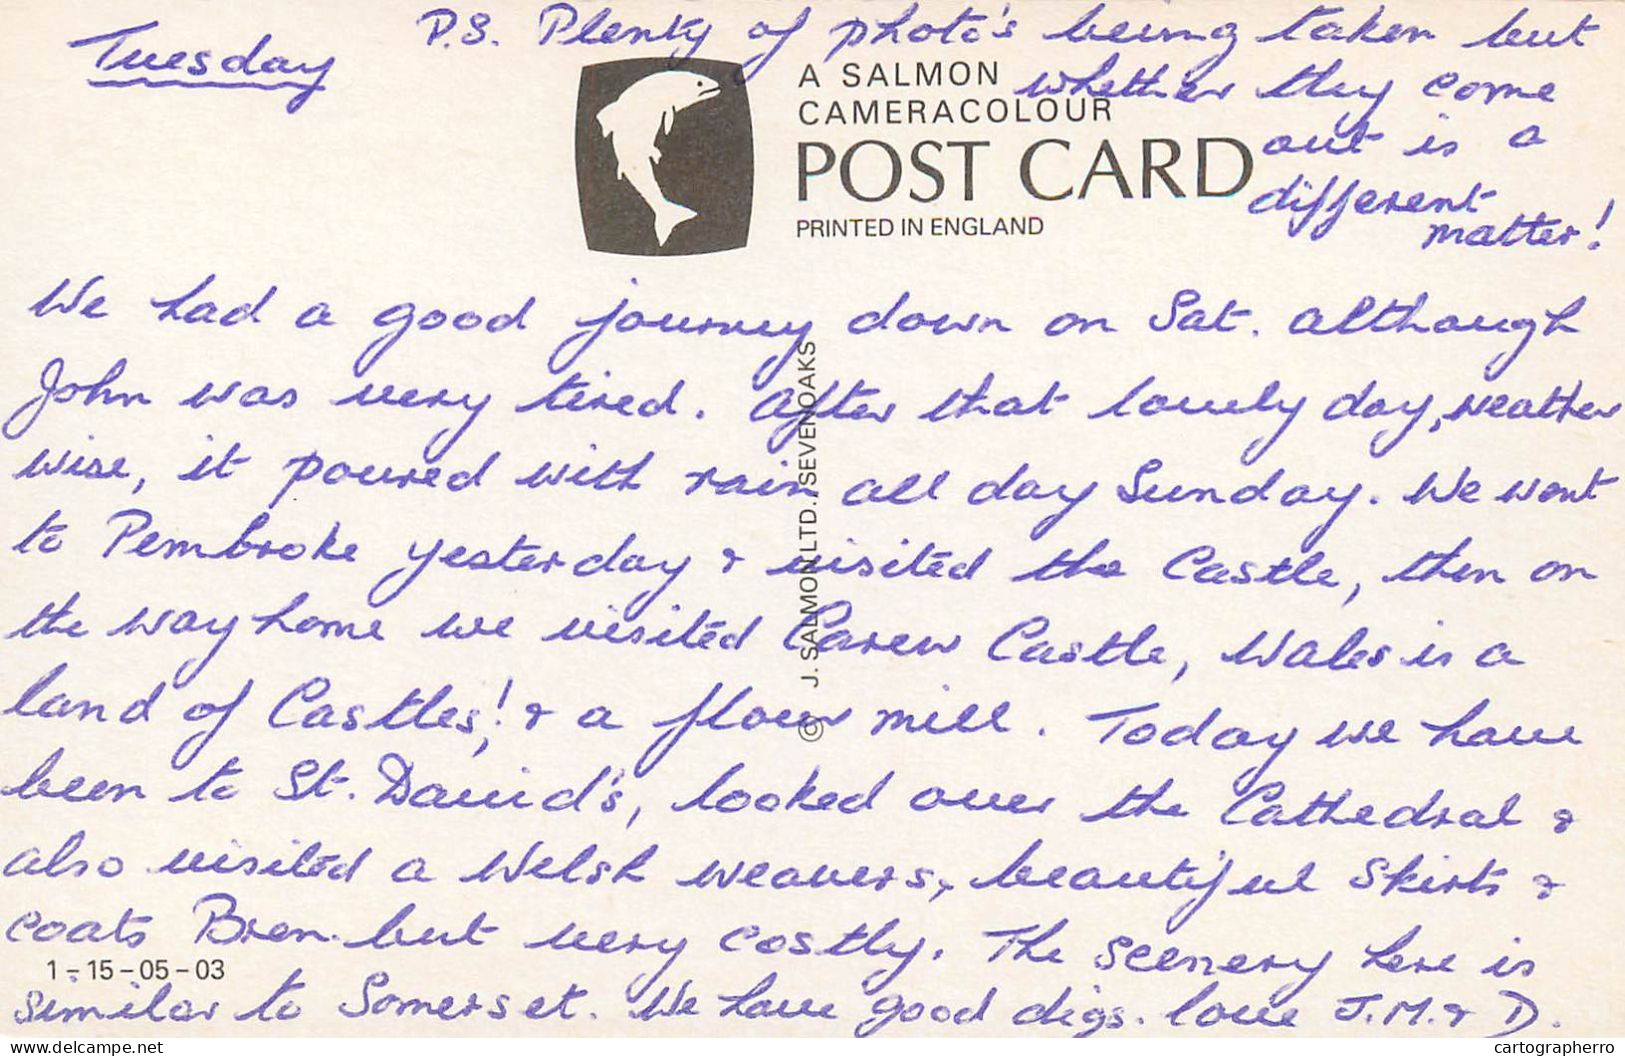 Tuesday
P.S. Plenty of photo's being taken but
whether they come
out is a
different
matter!
A SALMON
CAMERACOLOUR
POST CARD
PRINTED IN ENGLAND
We had a good journey down on Sat. although
John was very tired. After that lovely day, weather
wise, it poured with rain all day Sunday. We went
to Pembroke yesterday & visited the Castle, then on
the way home we visited Carew Castle, Wales is a
land of Castles,! & a flour mill. Today we have
been to St. David's, looked over the Cathedral &
also visited a Welsh weavers, beautiful skirts &
coats Bren. but very costly. The scenery here is
similar to Somerset. We have good digs. love J.M. & D.
© J. SALMON LTD. SEVENOAKS
1-15-05-03
delcampe.net
cartographerro